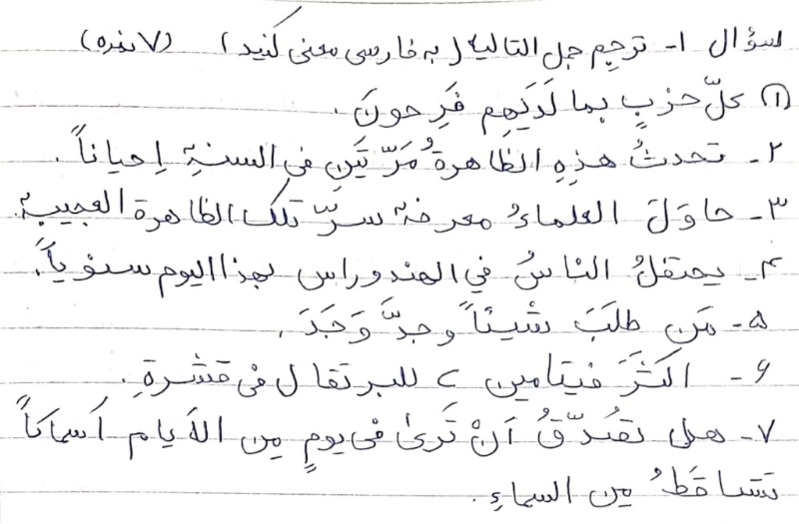 سؤال ۱- ترجم جمل التالیة (به فارسی معنی کنید) (۷ نمره)
① کلّ حزبٍ بما لَدَیهِم فَرِحونَ.
۲- تحدثُ هذِهِ الظاهرةُ مَرّتَینِ فی السنةِ اِحیاناً.
۳- حاوَلَ العلماءُ معرفة سرّ تلک الظاهرة العجیبة.
۴- یحتفلُ الناسُ في الهندوراس بهذا الیوم سنویاً.
۵- مَن طلَبَ شَیئاً وجدَّ وَجَدَ.
۶- اکثَرَ فیتامین C للبرتقال فی قشرةِ.
۷- هل تصُدّقُ اَنْ تَریٰ فی یومٍ مِن الأیام اَسماکاً
تتساقَطُ مِن السماءِ.